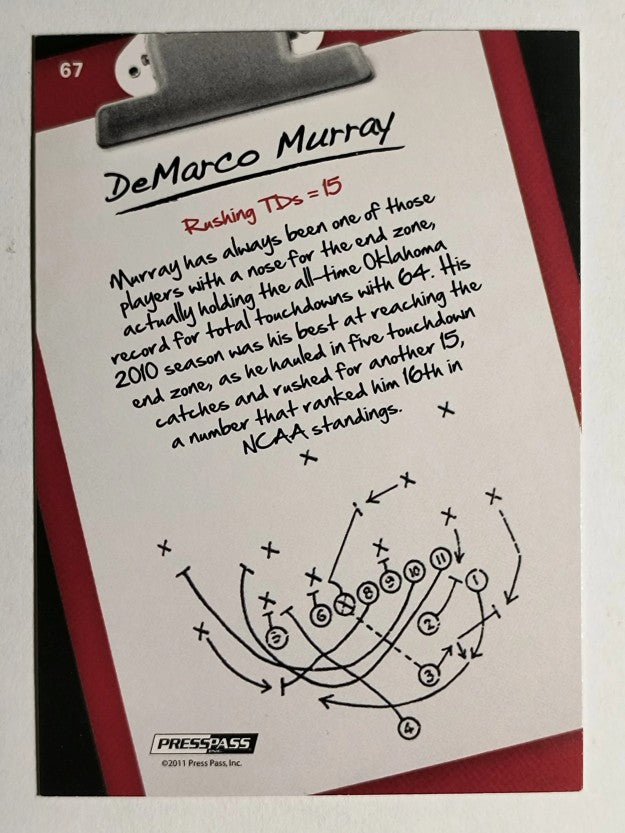 67
DeMarco Murray
Rushing TDs = 15
Murray has always been one of those
players with a nose for the end zone,
actually holding the all-time Oklahoma
record for total touchdowns with 64. His
2010 season was his best at reaching the
end zone, as he hauled in five touchdown
catches and rushed for another 15,
a number that ranked him 16th in
NCAA standings.
X
X
X
X
X
X X X
X 11
X 9 10 1
X 6 X 8
5 2
X
3
4
PRESSPASS
INC.
©2011 Press Pass, Inc.